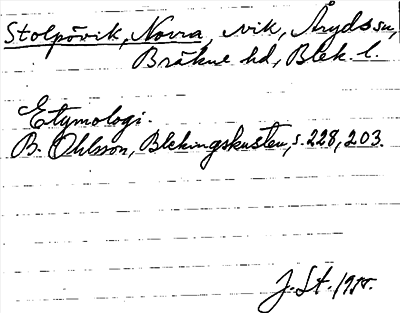 Stolpövik, Norra, vik, Åryds sn,
Bräkne hd, Blek. l.
Etymologi.
B. Ohlsson, Blekingskusten, s. 228, 203.
J. St.